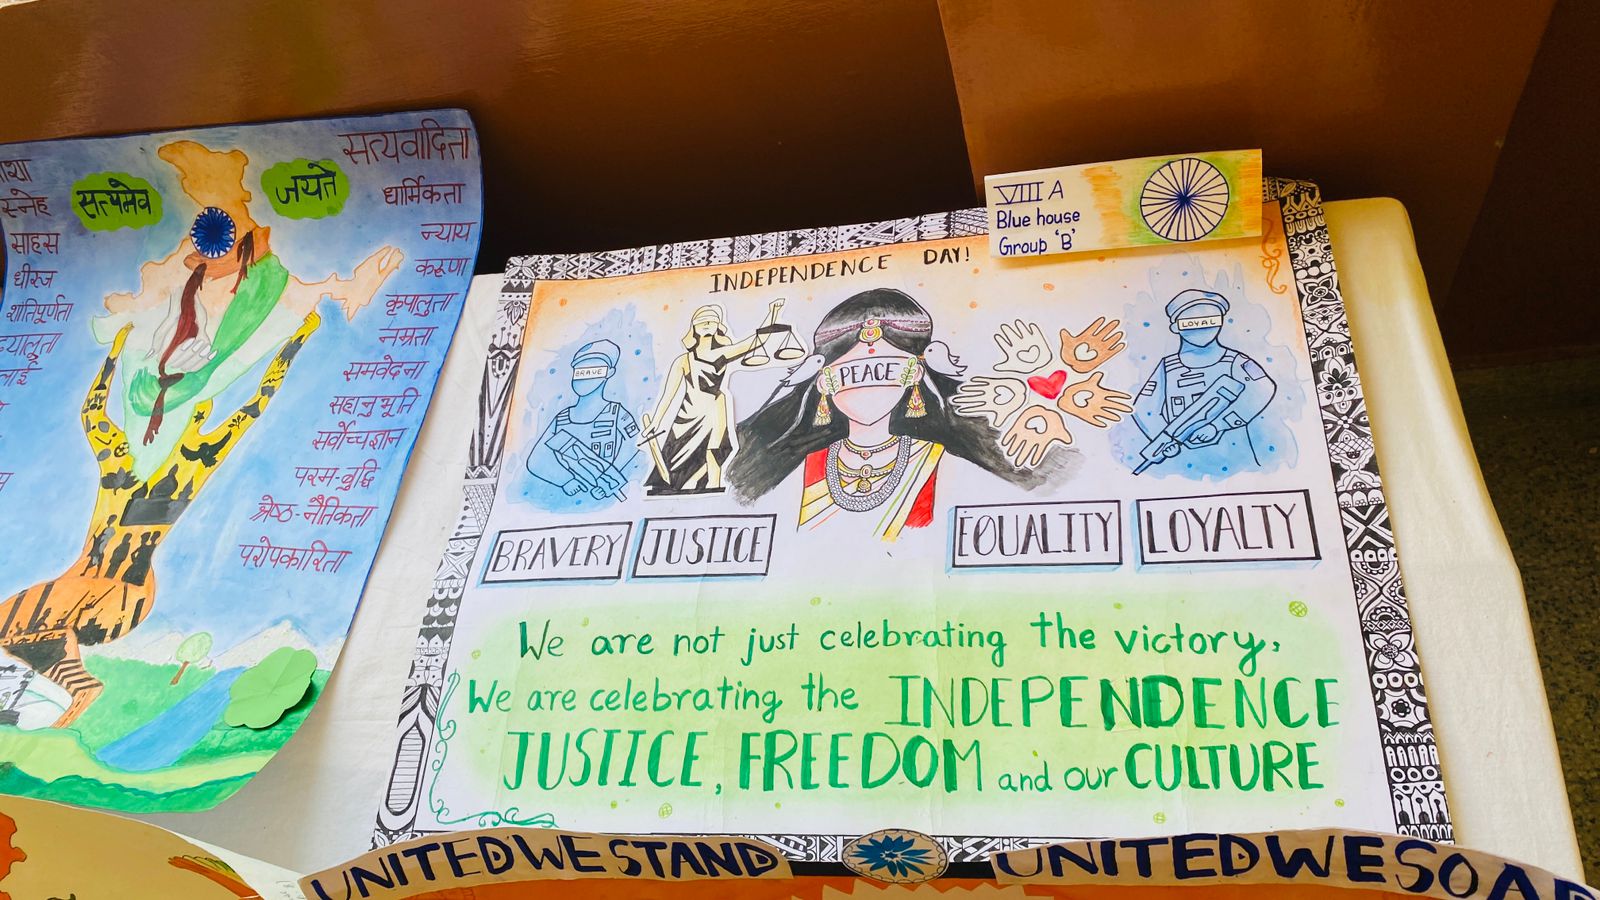 सत्यमेव
जयते
स्नेह
साहस
धीरज
शांतिपूर्णता
सत्यवादिता
धार्मिकता
न्याय
करूणा
कृपालुता
नम्रता
समवेदना
सहानुभूति
सर्वोच्च ज्ञान
परम-बुद्धि
श्रेष्ठ-नैतिकता
परोपकारिता
VIII A
Blue house
Group 'B'
INDEPENDENCE DAY!
BRAVE
PEACE
LOYAL
BRAVERY
JUSTICE
EQUALITY
LOYALTY
We are not just celebrating the victory,
We are celebrating the INDEPENDENCE
JUSTICE, FREEDOM and our CULTURE
UNITED WE STAND
UNITED WE SOAR